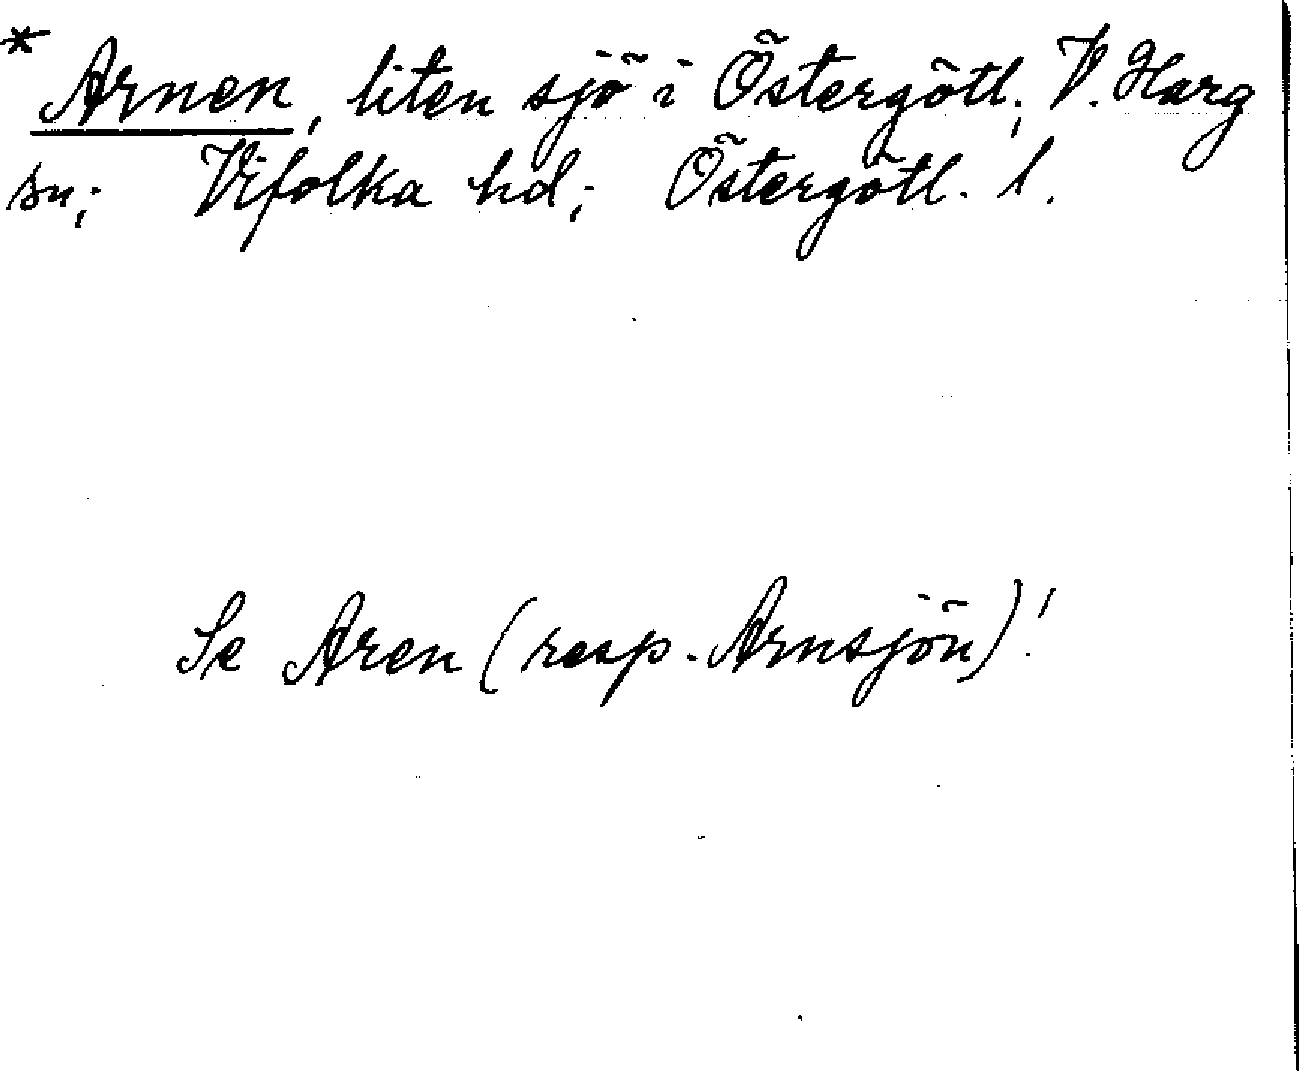 * Arnen, liten sjö i Östergötl; V. Harg
sn; Vifolka hd; Östergötl. l.
Se Aren (resp. Arnsjön)!